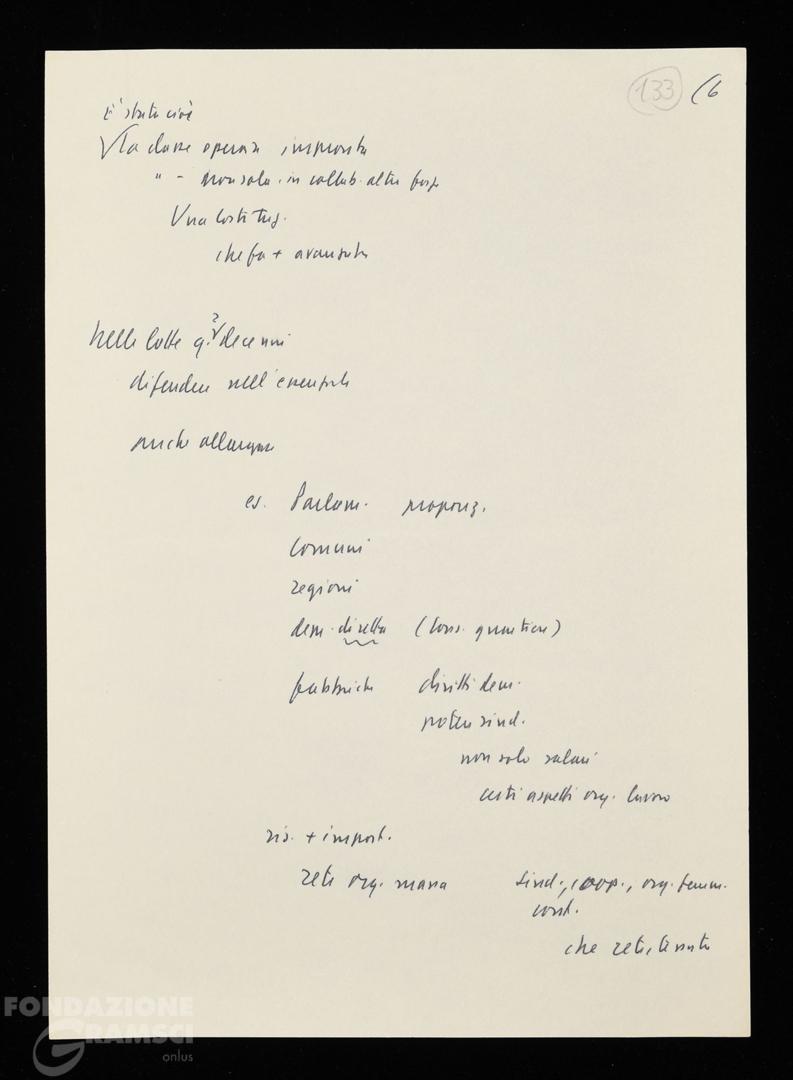 133 (6
È stata cioè
La classe operaia impronta
" - non sola. in collab. altre forze
Una Costituz.
che fa + avanzata
Nelle lotte q. 2 decenni
difendere nell'essenziale
anche allargare
es. Parlam. proporz.
Comuni
regioni
dem. diretta (Cons. quartiere)
fabbriche diritti dem.
potere sind.
non solo salari
certi aspetti org. lavoro
+ import.
rete org. massa sind., coop., org. femm.
che rete, tessuto
FONDAZIONE
GRAMSCI
onlus